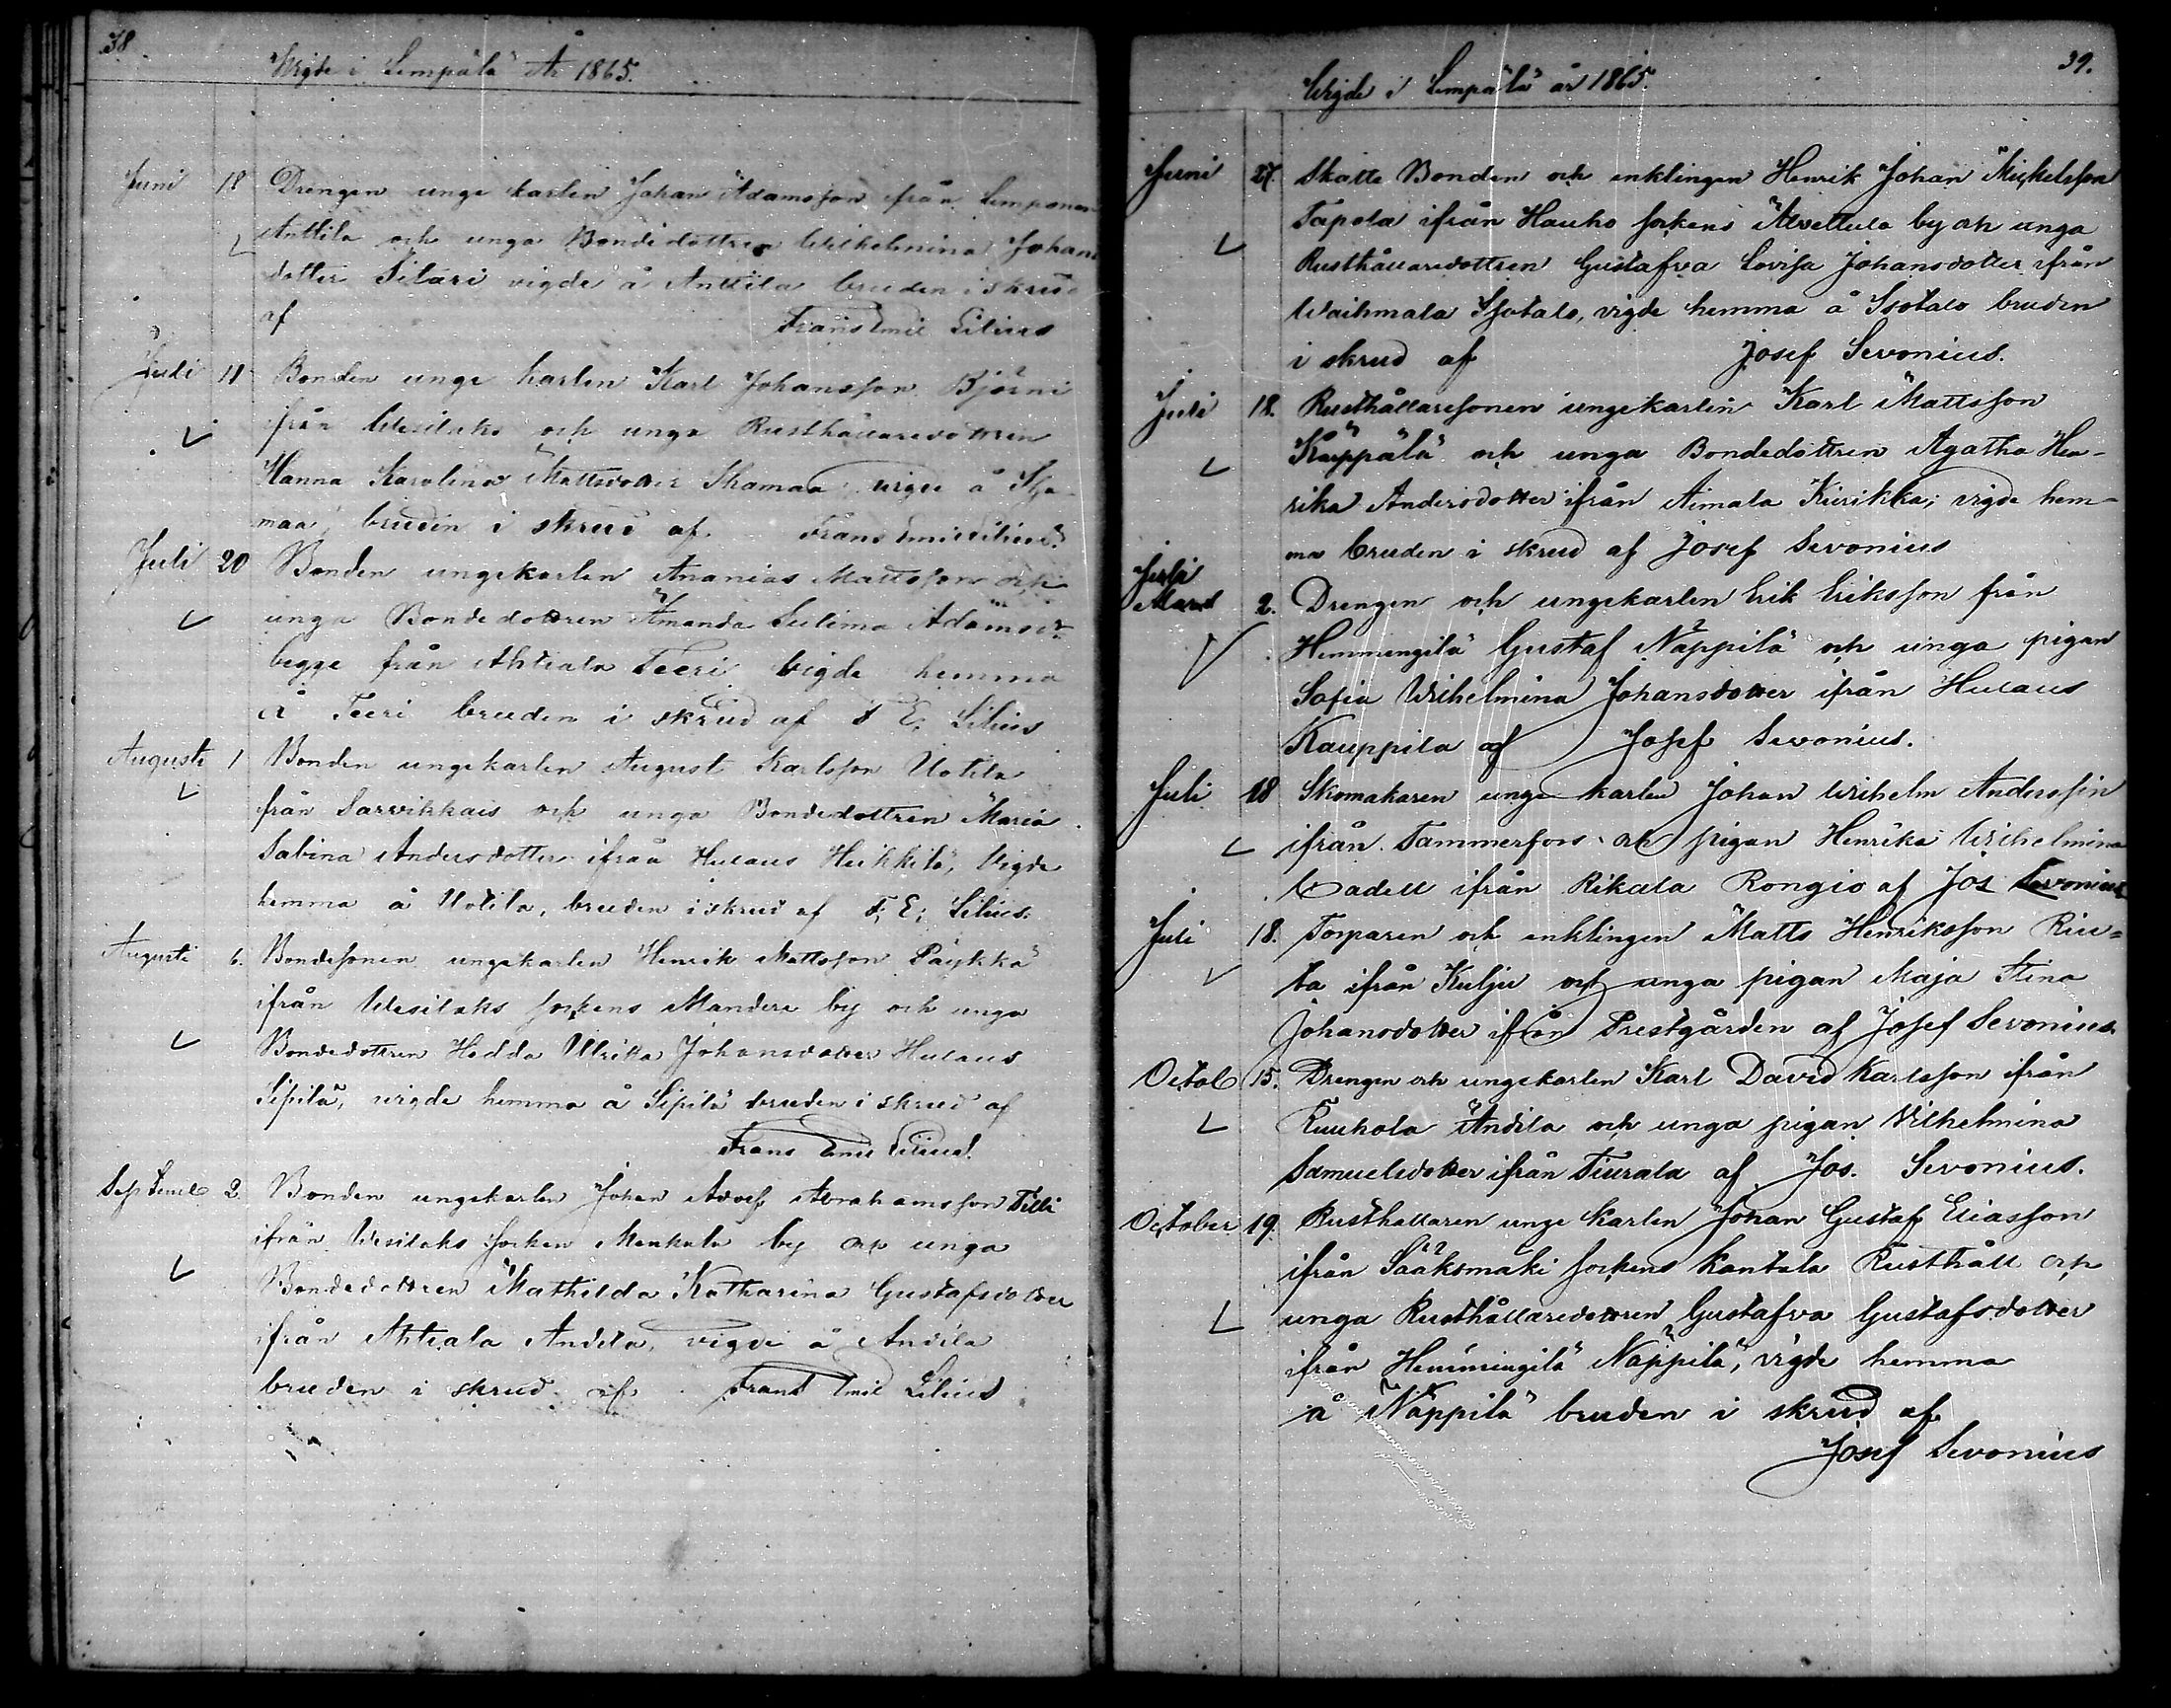 38
Wigde i Lempälä År 1865.
Juni 18 Drengen unge karlen Johan Adamsson från Lemponen
Anttila och unga Bondedottren Wilhelmina Johans
dotter Sitari vigde å Anttila bruden i skrud
af Frans Emil Lilius
Juli 11 Bonden unge karlen Karl Johansson Björni
från Wesilaks och unga Rusthållaredottren
Hanna Karolina Mattsdotter vigde å
maa, bruden i skrud af Frans Emil Lilius
Juli 20 Bonden ungekarlen Ananias Mattsson och
unga Bondedottren Amanda Sulima Adamsdr
begge från Ahtiala Teeri vigde hemma
å Teeri bruden i skrud af F. E. Lilius
Augusti 1 Bonden ungekarlen August Karlsson Uotila
från Sarvikkais och unga Bondedottren Maria
Sabina Andersdotter ifrån Hulaus Heikkilä, Vigde
hemma å Uotila, bruden i skrud af F. E. Lilius.
Augusti 6. Bondesonen ungekarlen Henrik Mattsson Päykkä
ifrån Wesilaks sockens Mandere by och unga
Bondedottren Hedda Ulrika Johansdotter Hulaus
Sipilä, vigde hemma å Sipilä bruden i skrud af
Frans Emil Lilius.
Septemb 2. Bonden ungekarlen Johan Adolf Abrahamsson Tilli
ifrån Wesilaks socken Menkala by och unga
Bondedottren Mathilda Katharina Gustafsdotter
ifrån Ahtiala Andila, vigde å Andila
bruden i skrud af Frans Emil Lilius
39.
Wigde i Lempälä år 1865.
Juni 27. Skatte Bonden och enklingen Henrik Johan Mickelsson
Tapola ifrån Hauho sockens Alvettula by och unga
Rusthållaredottren Gustafva Lovisa Johansdotter ifrån
Waihmala Isotalo, vigde hemma å Isotalo bruden
i skrud af Josef Sevonius.
Juli 18. Rusthållaresonen ungekarlen Karl Mattsson
Käppälä och unga Bondedottren Agatha Hen-
rika Andersdotter ifrån Aimala Kiirikka; vigde hem-
ma bruden i skrud af Josef Sevonius
Juli
Mars 2. Drengen och ungekarlen Erik Eriksson från
Hemmingilä Gustaf Näppilä och unga pigan
Sofia Wilhelmina Johansdotter ifrån Hulaus
Kauppila af Josef Sevonius.
Juli 18 Skomakaren unge karlen Johan Wilhelm Andersson
ifrån Tammerfors och pigan Henrika Wilhelmina
Cadell ifrån Rikala Rongio af Jos Sevonius
Juli 18. Torparen och enklingen Matts Henriksson Riu-
ta ifrån Kulju och unga pigan Maja Stina
Johansdotter ifrån Prestgården af Josef Sevonius
Octob 15. Drengen och ungekarlen Karl David Karlsson ifrån
Kuukola Andila och unga pigan Vilhelmina
Samuelsdotter ifrån Tiurala af Jos. Sevonius.
October 19. Rusthållaren unge karlen Johan Gustaf Eliasson
ifrån Sääksmäki sockens Kantala Rusthåll och
unga Rusthållaredottren Gustafva Gustafsdotter
ifrån Hemmingilä Näppilä, vigde hemma
å Näppilä bruden i skrud af
Josef Sevonius